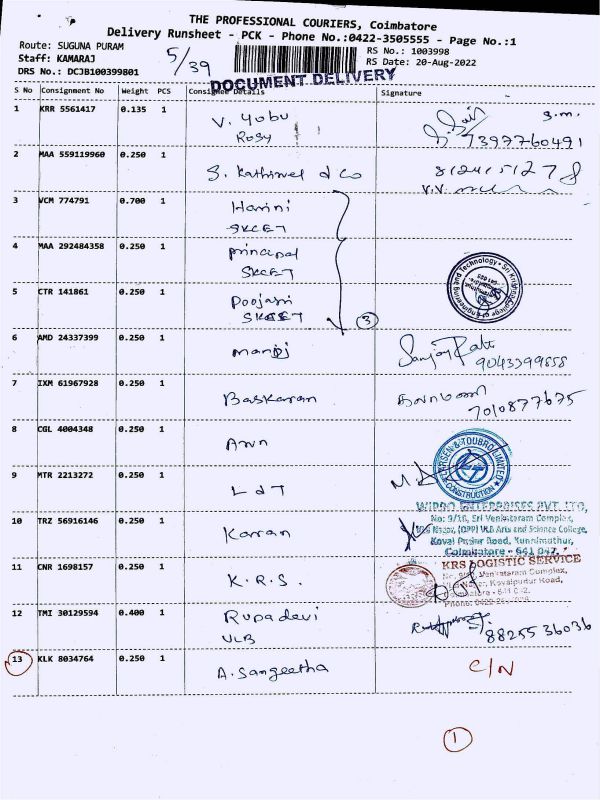 THE PROFESSIONAL COURIERS, Coimbatore
Delivery Runsheet - PCK - Phone No.:0422-3505555 - Page No.:1
Route: SUGUNA PURAM
Staff: KAMARAJ
DRS No.: DCJB100399801
5/39
RS No.: 1003998
RS Date: 20-Aug-2022
DOCUMENT DELIVERY
S No Consignment No Weight PCS Consignee Details Signature
1 KRR 5561417 0.135 1 V. Yobu
Rosy
7397760491
2 MAA 559119960 0.250 1 S. Kathirvel & Co
3 VCM 774791 0.700 1 Harini
SKCET
4 MAA 292484358 0.250 1 principal
SKCET
5 CTR 141861 0.250 1 Poojasri
SKCET
3
Sri Krishna College of Engineering and Technology
6 AMD 24337399 0.250 1 manoj
9043399858
7 IXM 61967928 0.250 1 Baskaran
7010877675
8 CGL 4004348 0.250 1 Arun
LARSEN & TOUBRO LIMITED
CONSTRUCTION
9 MTR 2213272 0.250 1 L & T
WIPRO ENTERPRISES PVT. LTD,
10 TRZ 56916146 0.250 1 Karran
No: 9/16, Sri Venkataram Complex,
VLB Nagar, (OPP) VLB Arts and Science College,
Kovai Pudur Road, Kunniamuthur,
Coimbatore - 641 042.
11 CNR 1698157 0.250 1 K.R.S.
KRS LOGISTIC SERVICE
Venkataram Complex,
Nagar, Kovaipudur Road,
Coimbatore
12 TMI 30129594 0.400 1 Rupadevi
VLB
8825536036
13 KLK 8034764 0.250 1 A. Sangeetha
C/N
1